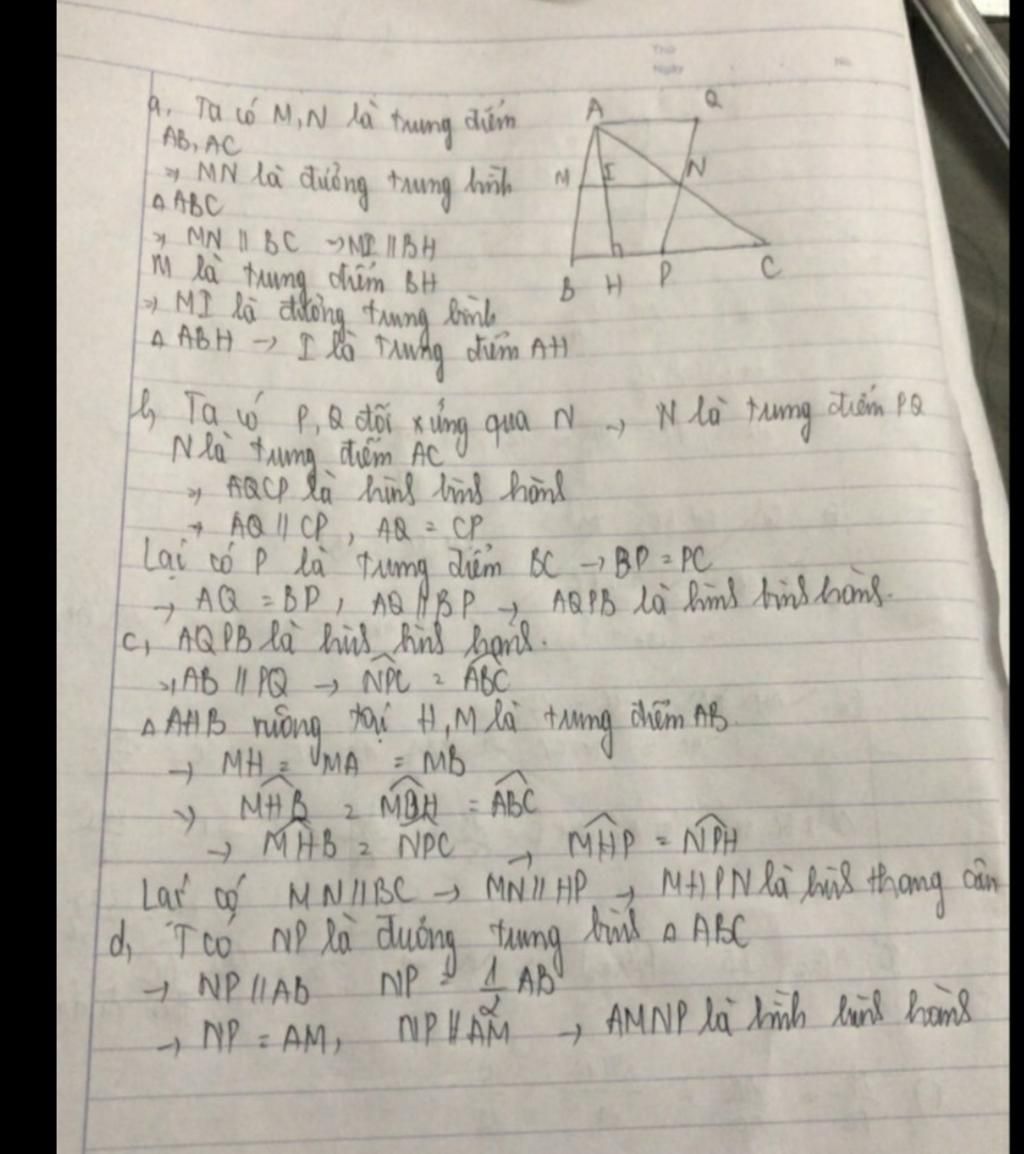 Thứ
Ngày
No.
a, Ta có M, N là trung điểm
AB, AC
→ MN là đường trung bình
△ ABC
→ MN // BC → MI // BH
M là trung điểm BH
→ MI là đường trung bình
△ ABH → I là trung điểm AH
A Q
M I N
B H P C
b, Ta có P, Q đối xứng qua N → N là trung điểm PQ
N là trung điểm AC
→ AQCP là hình bình hành
→ AQ // CP, AQ = CP
Lại có P là trung điểm BC → BP = PC
→ AQ = BP, AQ // BP → AQPB là hình bình hành.
c, AQPB là hình bình hành.
→ AB // PQ → NPC = ABC
△ AHB vuông tại H, M là trung điểm AB
→ MH = MA = MB
→ MHB = MBH = ABC
→ MHB = NPC → MHP = NPH
Lại có MN // BC → MN // HP → MHPN là hình thang cân
d, T có NP là đường trung bình △ ABC
→ NP // AB NP = 1/2 AB
→ NP = AM, NP // AM → AMNP là hình bình hành